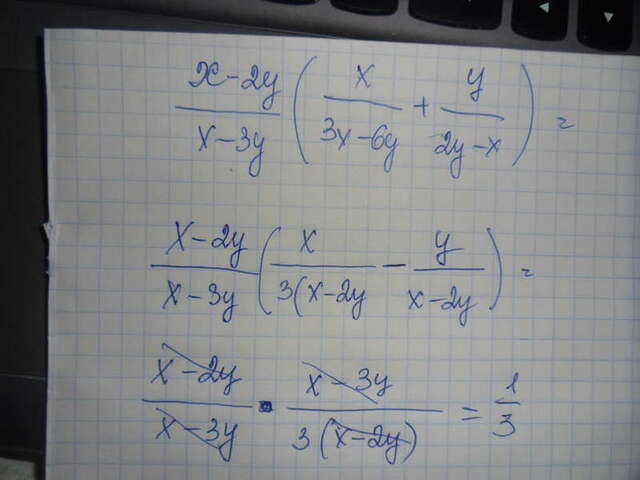 (x-2y)/(x-3y) (x/(3x-6y) + y/(2y-x)) =
(x-2y)/(x-3y) (x/(3(x-2y) - y/(x-2y)) =
(x-2y)/(x-3y) · (x-3y)/(3(x-2y)) = 1/3